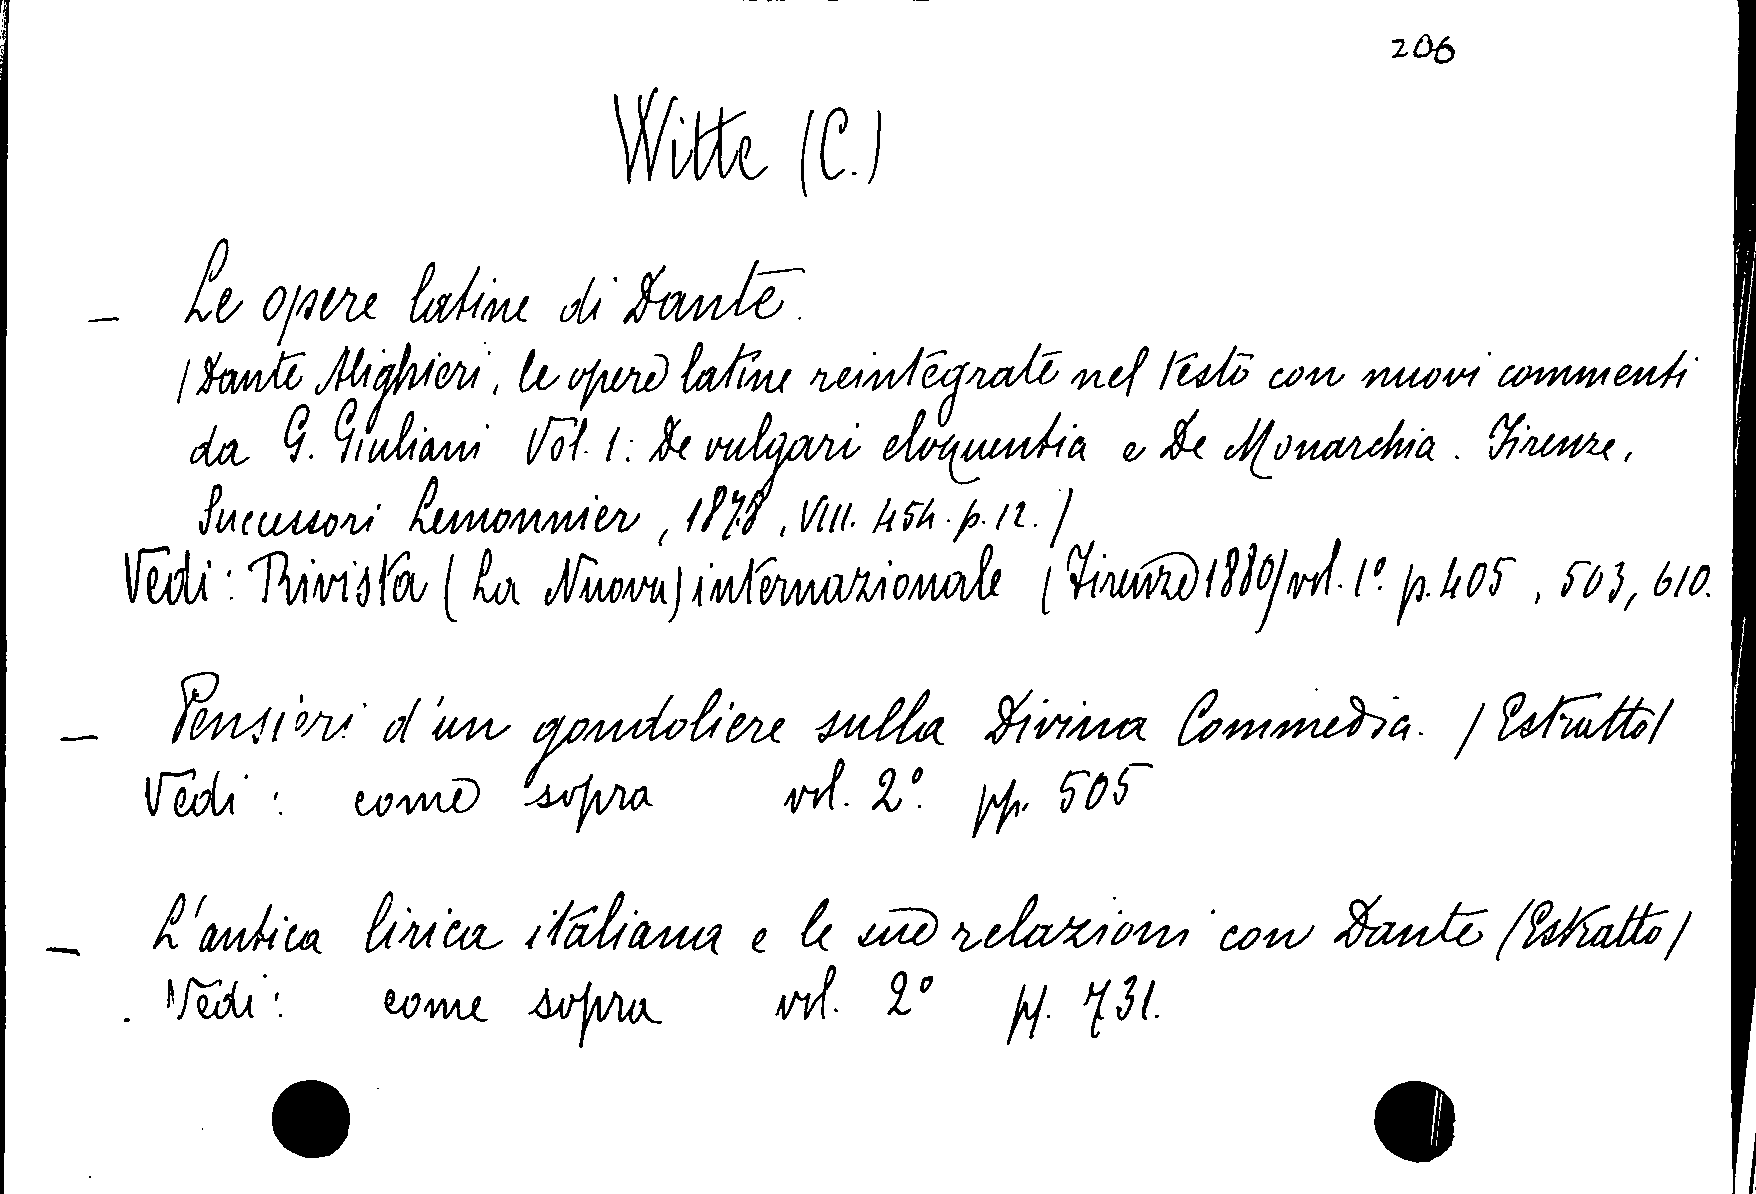 206
Witte (C.)
— Le opere latine di Dante.
(Dante Alighieri, le opere latine reintegrate nel testo con nuovi commenti
da G. Giuliani Vol. 1: De vulgari eloquentia e De Monarchia. Firenze,
Successori Lemonnier, 1878, VIII. 454. p. 12.)
Vedi: Rivista (La Nuova) internazionale (Firenze 1880) vol. 1º p. 405, 503, 610.
— Pensieri d'un gondoliere sulla Divina Commedia. (Estratto)
Vedi: come sopra vol. 2º. pp. 505
— L'antica lirica italiana e le sue relazioni con Dante (Estratto)
Vedi: come sopra vol. 2º pp. 731.